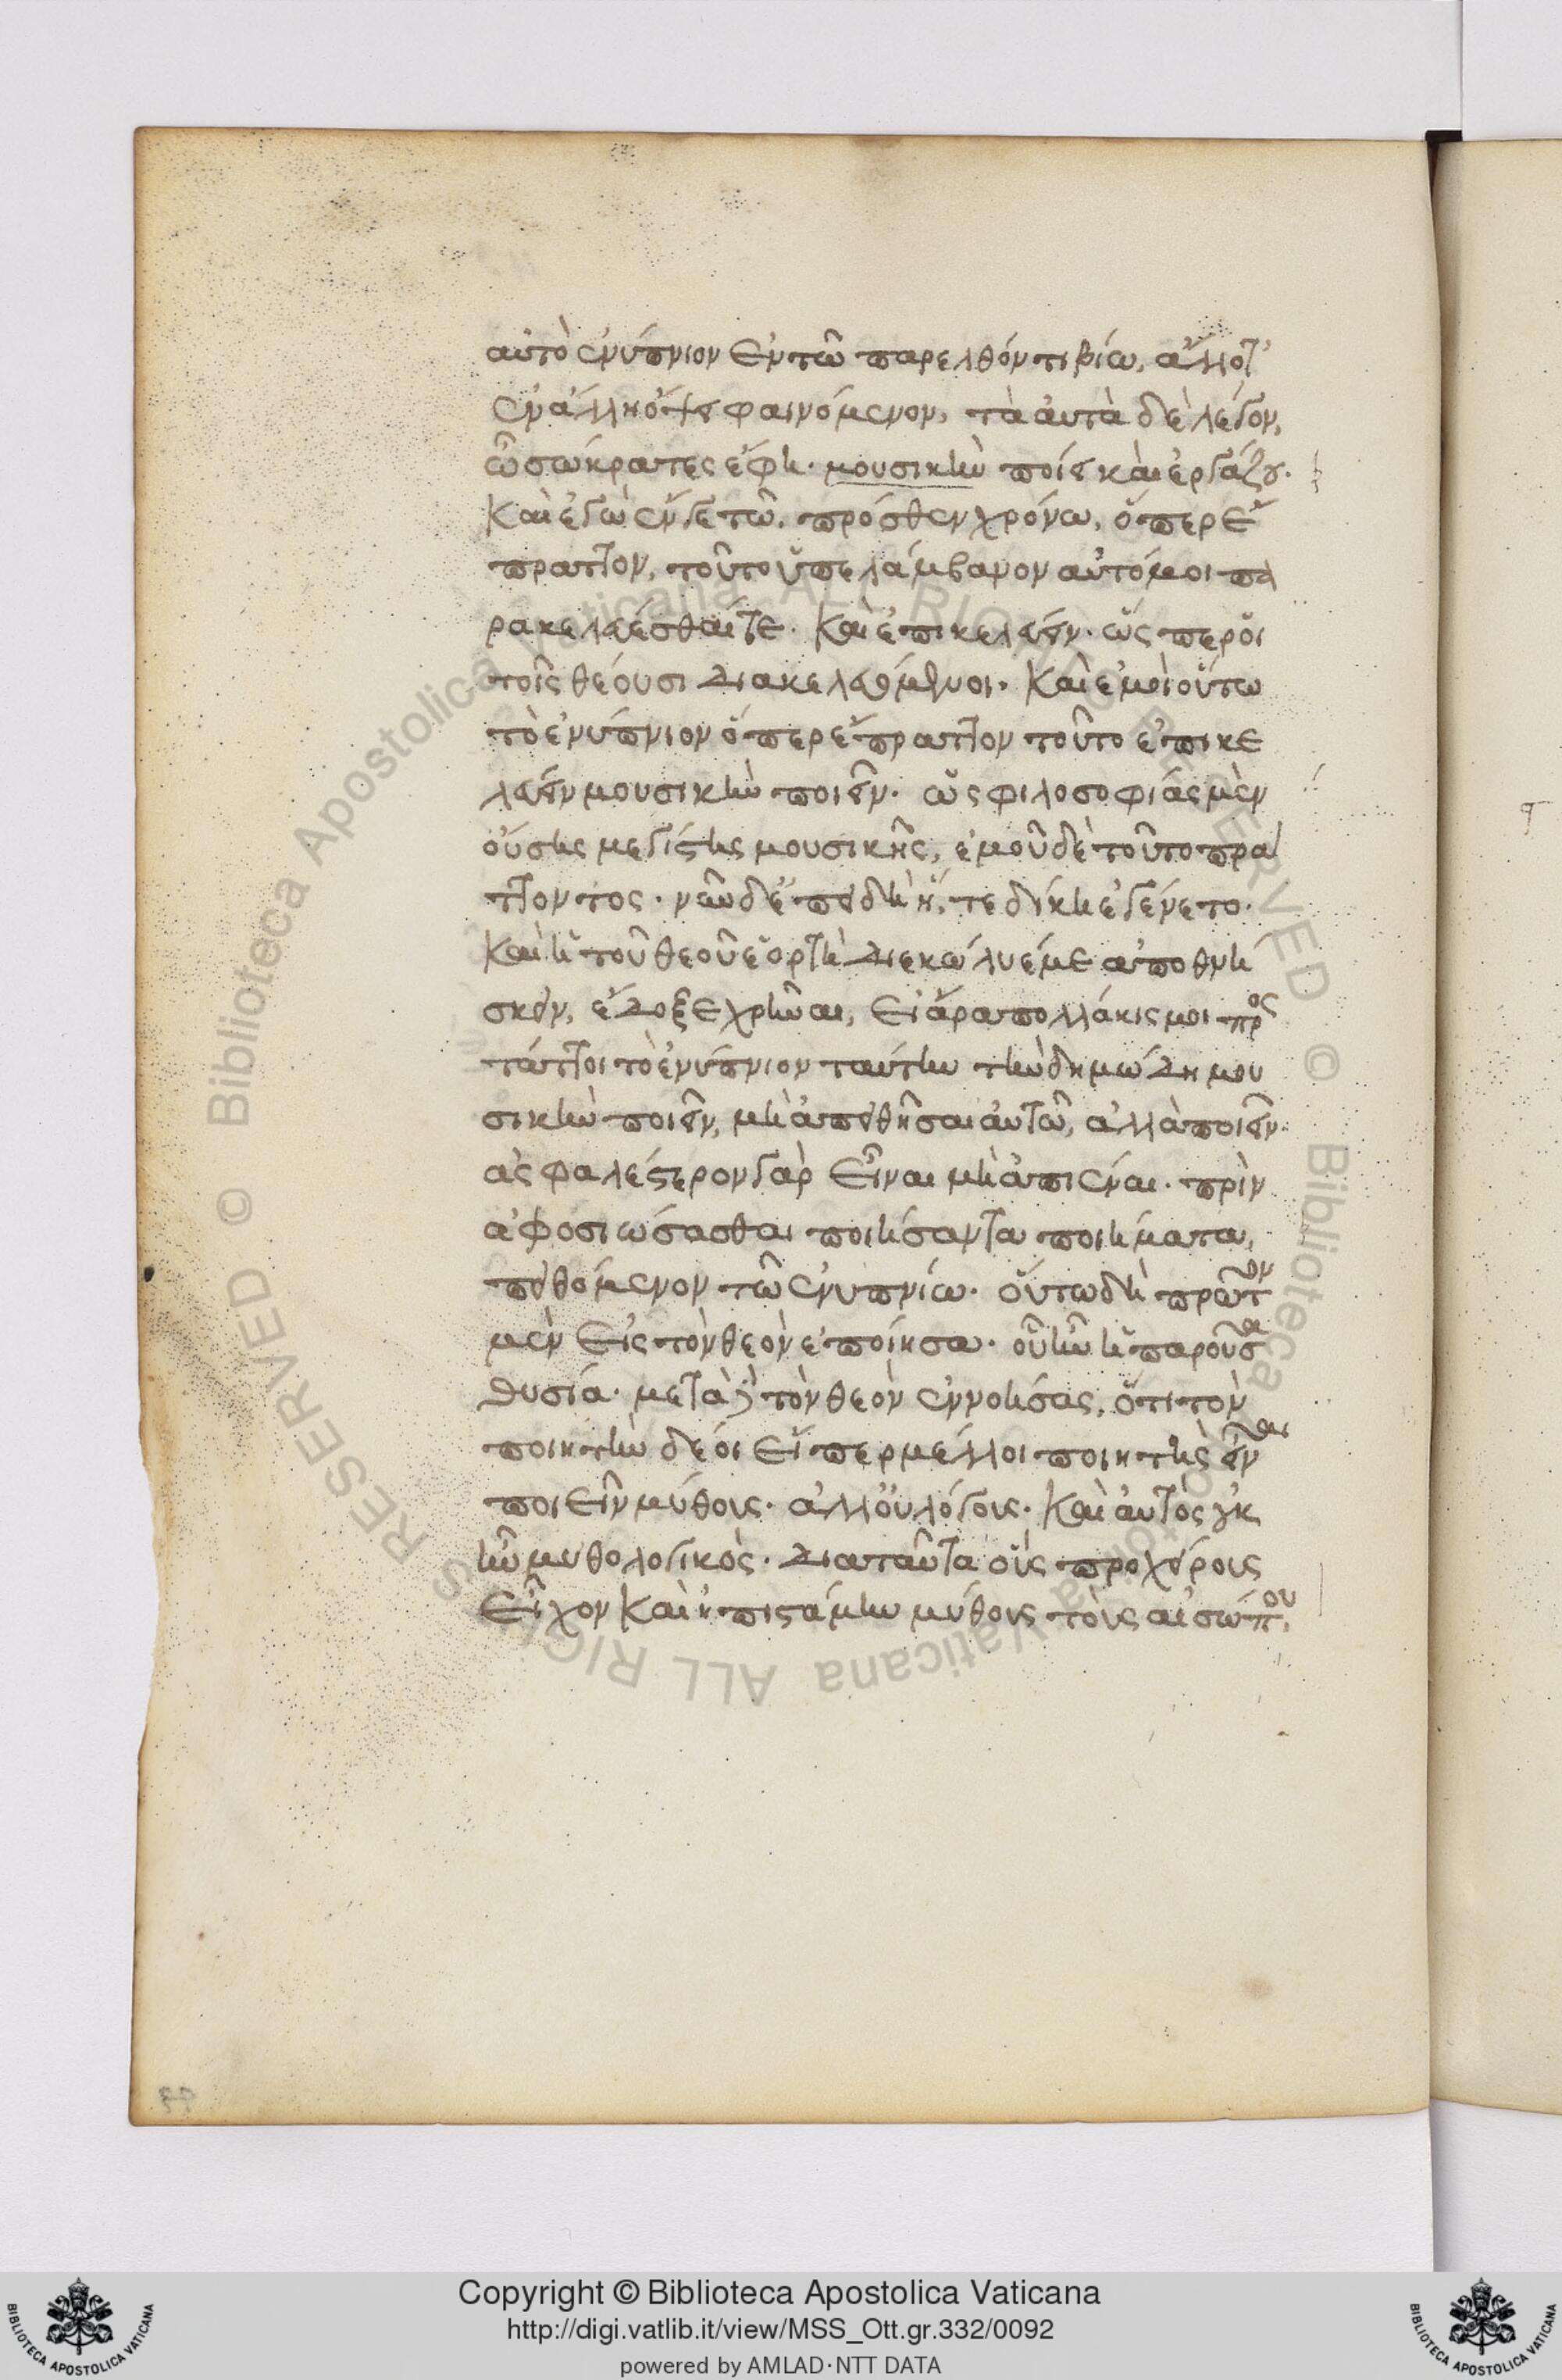 αὐτὸ ἐνύπνιον ἐν τῶ παρελθόντι βίω, ἄλλοτ'
ἐν ἄλλη ὄψει φαινόμενον, τὰ ἀυτὰ δὲ λέγον,
ὦ σώκρατες ἔφη· μουσικὴν ποίει καὶ ἐργάζου.
Καὶ ἐγὼ ἔν γε τῶ, πρόσθεν χρόνω, ὅπερ ἔ
πραττον, τοῦτο ὑπελάμβανον αὐτό μοι πα
ρακελεύεσθαί τε· Καὶ ἐπικελεύειν· ὥς περ ὅι
τοῖς θέουσι διακελευόμενοι. Καὶ ἐμοὶ οὕτω
τὸ ἐνύπνιον ὅπερ ἔπραττον τοῦτο ἐπικε
λεύειν μουσικὴν ποιεῖν· ὡς φιλοσοφίας μὲν
ὀύσης μεγίστης μουσικῆς, ἐμοῦ δὲ τοῦτο πρατ
τοντος· νῦν δ' ἐπειδὴ ἥ, τε δίκη ἐγένετο.
Καὶ ἡ τοῦ θεοῦ ἑορτὴ διεκώλυέ με ἀποθνή
σκειν, ἔδοξε χρῆναι, εἰ ἄρα πολλάκις μοι προς
τάττοι τὸ ἐνύπνιον ταύτην τὴν δημώδη μου
σικὴν ποιεῖν, μὴ ἀπειθῆσαι ἀυτῶ, ἀλλὰ ποιεῖν·
ἀσφαλέστερον γὰρ εἶναι μὴ ἀπιέναι· πρὶν
ἀφοσιώσασθαι ποιήσαντα ποιήματα,
πειθόμενον τῶ ἐνυπνίω· οὕτω δὴ πρῶτον
μὲν εἰς τὸν θεὸν ἐποίησα· οὗ ἦν ἡ παροῦσα
θυσία· μετὰ δὲ τὸν θεὸν ἐννοήσας, ὅτι τὸν
ποιητὴν δέοι εἴπερ μέλλοι ποιητὴς εἶναι
ποιεῖν μύθους· ἀλλ' ὀυ λόγους. Καὶ ἀυτὸς οὐκ
ἦν μυθολογικὸς· διαταῦτα οὓς προχείρους
εἶχον Καὶ ἠπιστάμην μύθους τοὺς αἰσώπου,
Copyright © Biblioteca Apostolica Vaticana
http://digi.vatlib.it/view/MSS_Ott.gr.332/0092
powered by AMLAD·NTT DATA